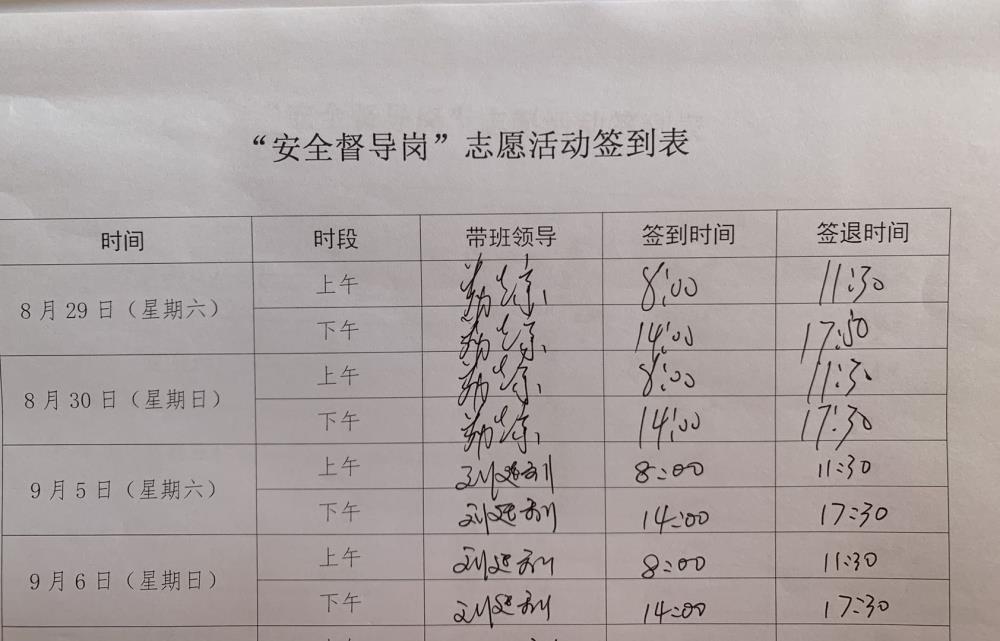 “安全督导岗”志愿活动签到表
时间 时段 带班领导 签到时间 签退时间
8月29日（星期六） 上午 8:00 11:30
下午 14:00 17:30
8月30日（星期日） 上午 8:00 11:30
下午 14:00 17:30
9月5日（星期六） 上午 8:00 11:30
下午 14:00 17:30
9月6日（星期日） 上午 8:00 11:30
下午 14:00 17:30